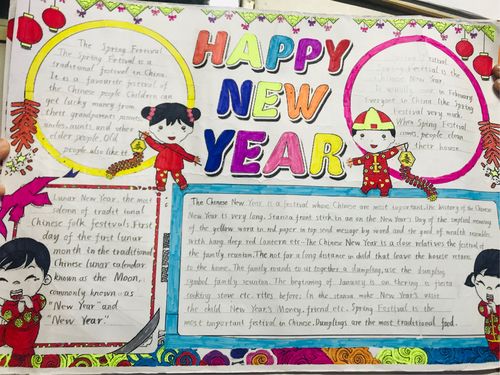 HAPPY
NEW
YEAR
The Spring Festival
The Spring Festival is a
traditional festival in China.
It is a favourite festival of
the Chinese people Children can
get lucky money from
their grandparents, parents
uncles, aunts, and other
elder people. Other
people also like it
Festival
Festival is the
Chinese New Year
It usually comes in February.
Everyone in China like Spring
Festival very much.
When Spring Festival
comes, people clean
their house.
Lunar New Year, the most
solemn of traditional
Chinese folk festivals. First
day of the first lunar
month in the traditional
Chinese lunar calendar
known as the Moon,
commonly known as
"New Year" and
"New Year."
The Chinese New Year is a festival whose Chinese are most important, the history of the Chinese
New Year is very long. Stanza front stick in an on the New Year's Day of the implied meaning
of the yellow word in red paper in, top send message by word and the god of wealth resembles
with hang deep red lantern etc. The Chinese New Year is a close relatives the festival of
the family reunion. The not for a long distance in child that leave the house return
to the home. The family rounds to sit together a dumpling, use the dumpling
symbol family reunion. The beginning of January is on thering is fiesta
cooking stove etc. rites before; In the stanza make New Year's visit
the child New Year's Money, friend etc. Spring Festival is the
most important festival in Chinese. Dumplings are the most traditional food.